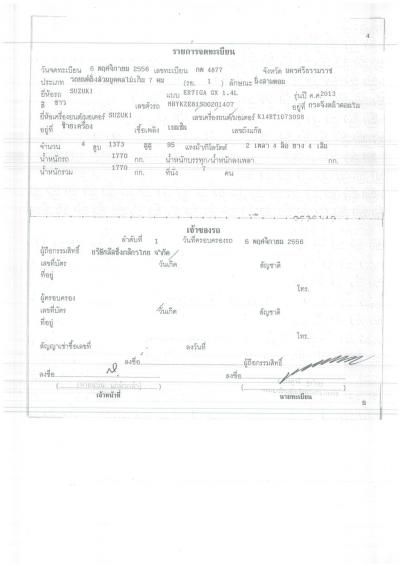 4
รายการจดทะเบียน
วันจดทะเบียน 6 พฤศจิกายน 2556 เลขทะเบียน กพ 4877 จังหวัด นครศรีธรรมราช
ประเภท รถยนต์นั่งส่วนบุคคลไม่เกิน 7 คน (รย. 1 ) ลักษณะ นั่งสามตอน
ยี่ห้อรถ SUZUKI แบบ ERTIGA GX 1.4L รุ่นปี ค.ศ.2013
สี ขาว เลขตัวรถ อยู่ที่
ยี่ห้อเครื่องยนต์/มอเตอร์ SUZUKI เลขเครื่องยนต์/มอเตอร์ K14BT1073098
อยู่ที่ เชื้อเพลิง เบนซิน เลขถังแก๊ส
จำนวน 4 สูบ 1373 ซีซี 95 แรงม้า/กิโลวัตต์ 2 เพลา 4 ล้อ ยาง 4 เส้น
น้ำหนักรถ 1770 กก. น้ำหนักบรรทุก/น้ำหนักลงเพลา กก.
น้ำหนักรวม 1770 กก. ที่นั่ง 7 คน
เจ้าของรถ
ลำดับที่ 1 วันที่ครอบครองรถ 6 พฤศจิกายน 2556
ผู้ถือกรรมสิทธิ์ บริษัทลีสซิ่งกสิกรไทย จำกัด
เลขที่บัตร วันเกิด สัญชาติ
ที่อยู่
โทร.
ผู้ครอบครอง
เลขที่บัตร วันเกิด สัญชาติ
ที่อยู่
โทร.
สัญญาเช่าซื้อเลขที่ ลงวันที่
ลงชื่อ ผู้ถือกรรมสิทธิ์
ลงชื่อ ลงชื่อ
เจ้าหน้าที่ นายทะเบียน
5